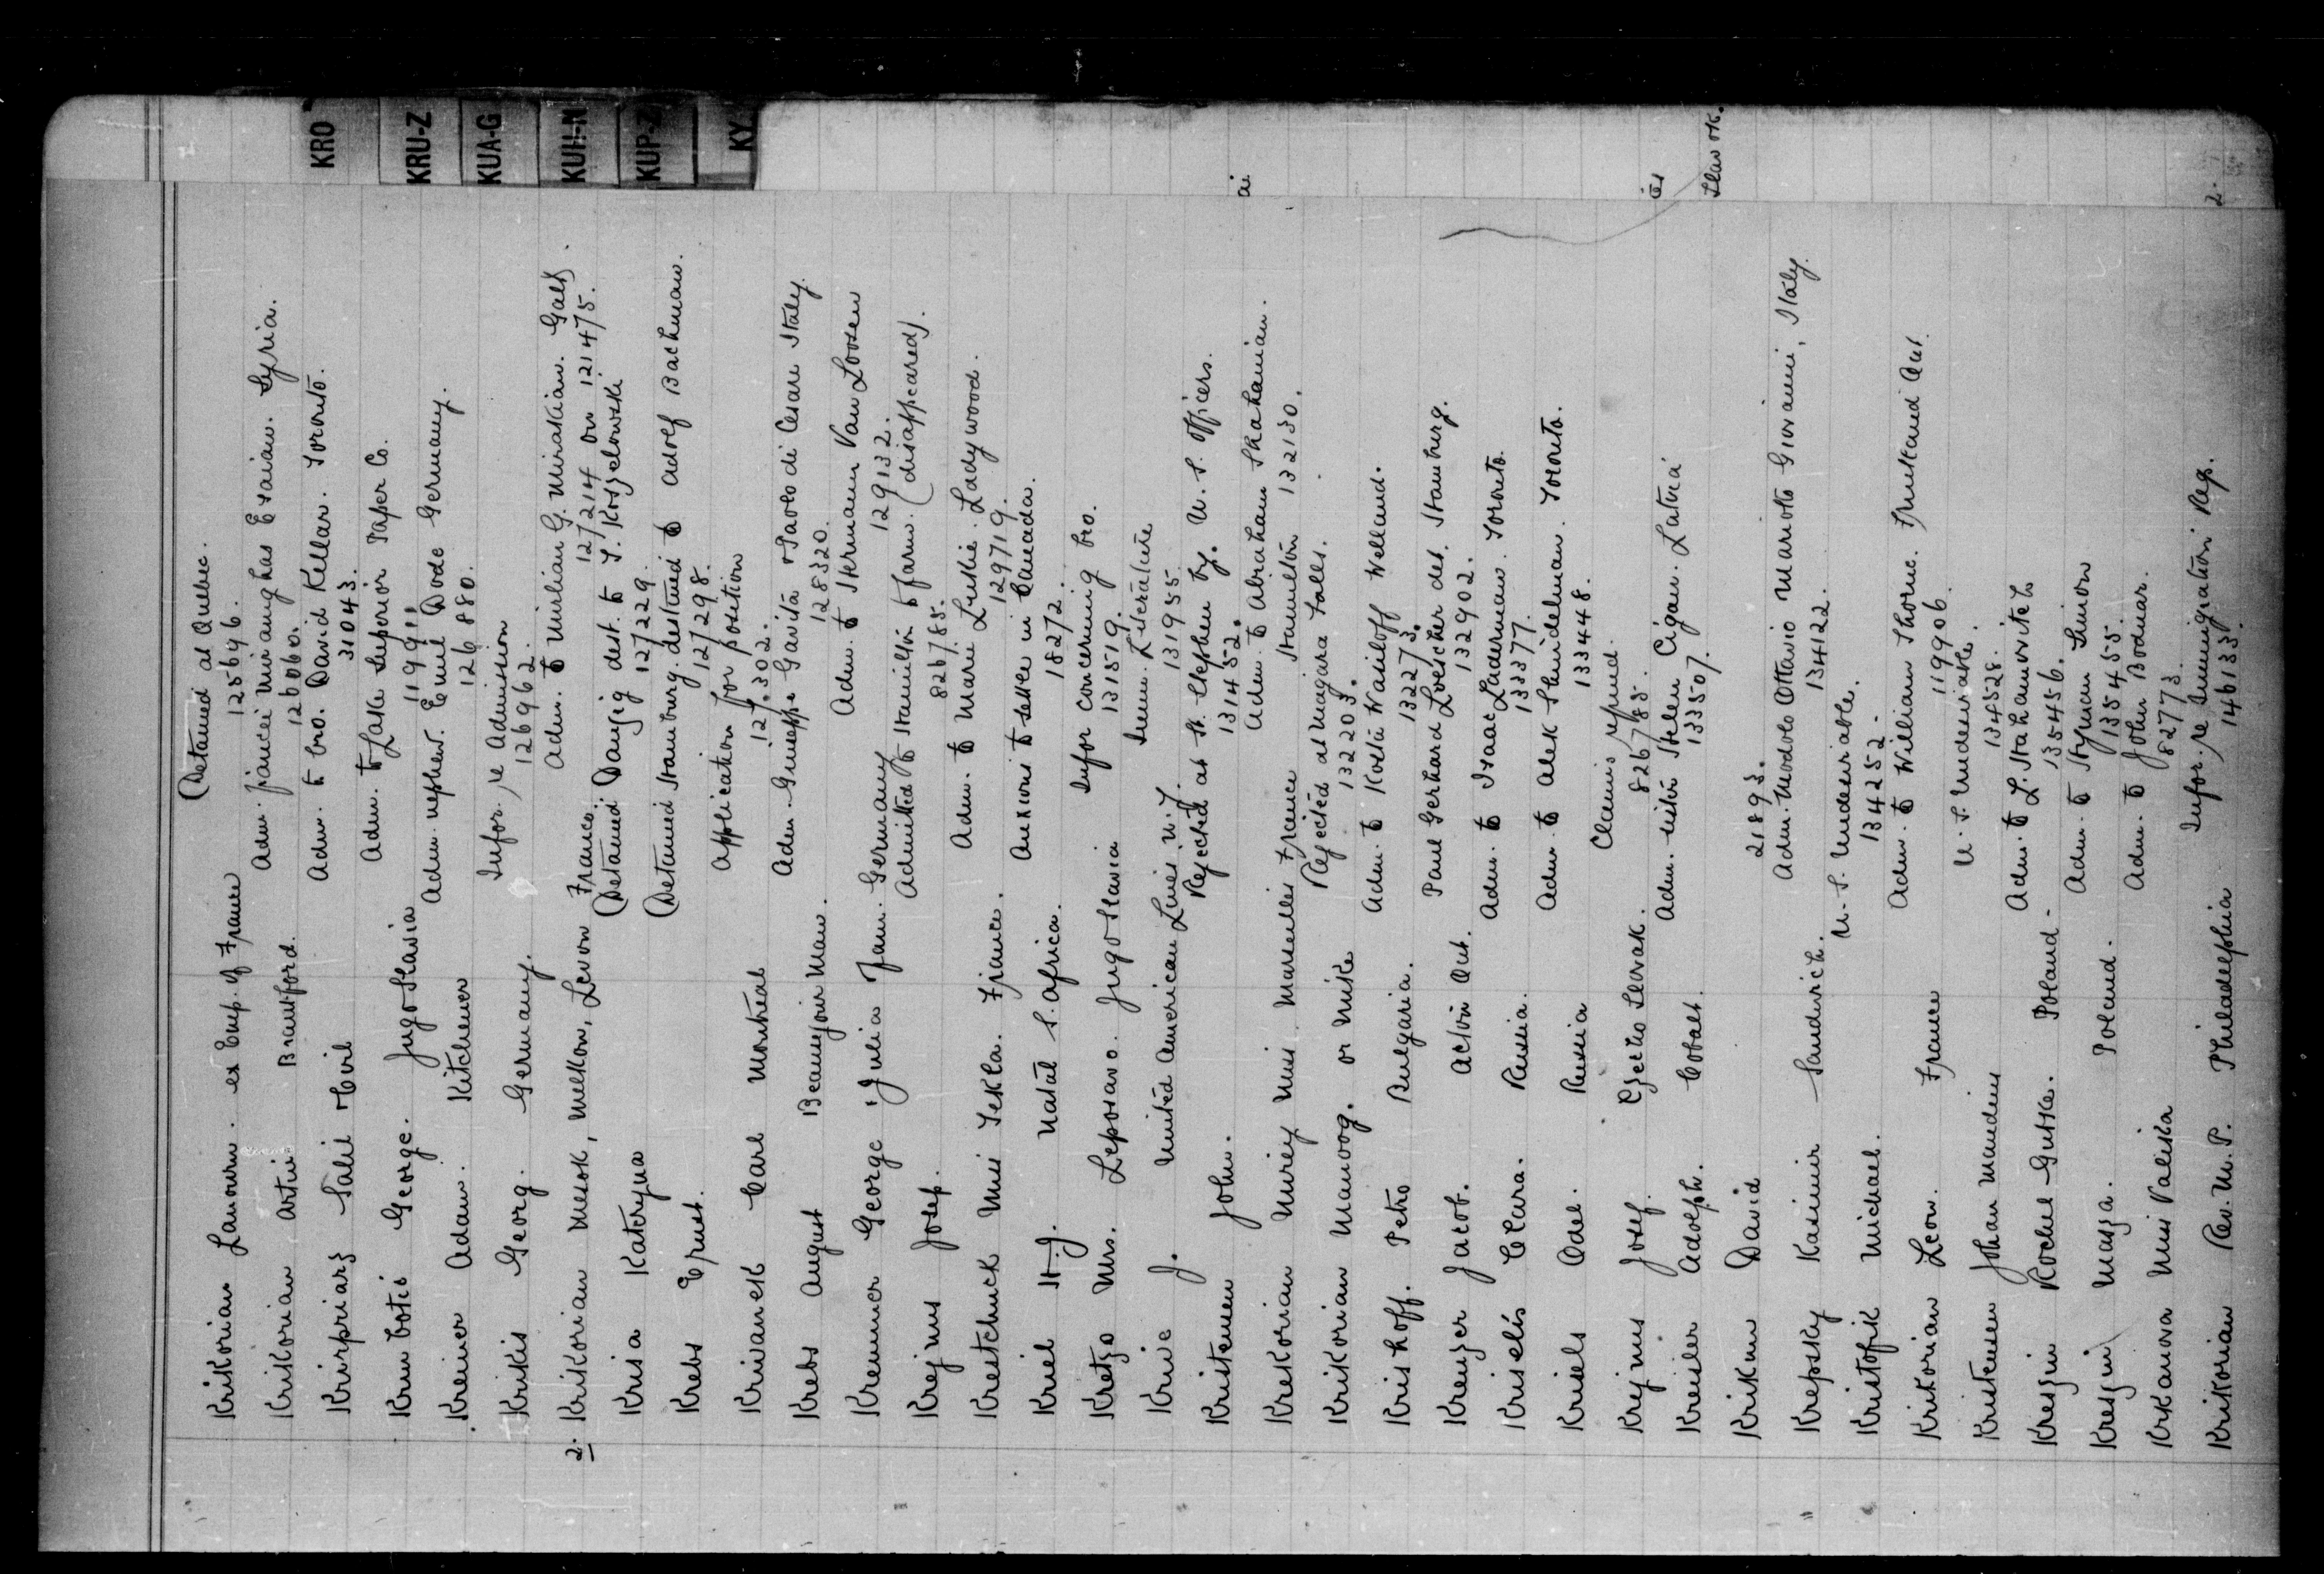 KRO
KRU-Z
KUA-G
KUH-N
KUP-Z
KY
Krikorian ex Emp. of France (Detained at Quebec.
125696.
Krikorian Artin Brantford. Adm. fiancée Miranghas Esaian. Syria.
126060.
Kirpriarz Salii & Civil Adm. to bro. David Kellar. Toronto.
31043.
Krum Cotis George. Jugo Slavia Adm. to Lake Superior Paper Co.
119911
Kreiner Adam. Kitchener Adm. nephew. Emil Dode Germany.
126880.
Kriskis Georg. Germany. Infor. re Admission
126962.
2. Krikorian Mesok, Melkon, Levon France Adm. to Mirbian G. Mirakian. Galt.
127214 on 121475.
Krisa Kateryna (Detained Danzig dest. to T. Kozelowski
127229.
Krebs Ernst. (Detained Hamburg. destined to Adolf Bachman.
127298.
Krivanek Carl Montreal Application for position
127302.
Krebs August Beausejour Man. Adm. Guiseppe Gavita & Paolo di Cesare Italy.
128320.
Kremmer George & Julia Fam. Germany Adm. to Hermann Van Loosen
129132.
Krejnus Josep. Admitted to Hamilton to farm. (disappeared).
826785.
Krestchuck Miss Tekla. France. Adm. to Marie Luskie. Ladywood.
129719.
Kriel H.J. Natal S. Africa. Anxious to settle in Canada.
18272.
Kretzo Mrs. Leposavo. Jugo Slavia Infor concerning bro.
131519.
Krive J. United American Lines N.Y. Imm. Literature
131955.
Kristensen John. Rejected at St. Stephen by. U.S. Officers.
131452.
Krekorian Miss Marseilles France Adm. to Abraham Shahanian.
Hamilton 132130.
Krikorian Manoog. or Mike Rejected at Niagara Falls.
132203.
Krishoff. Petro Bulgaria. Adm. to Kosta Wasiloff Welland.
132273.
Kreuzer Jacob. Acton Ont. Paul Gerhard Loescher det. Hamburg.
132902.
Kriselis Clara. Russia. Adm. to Isaac Laderman. Toronto.
133377.
Krisels Odel. Russia Adm. to Alek Shnidelman. Toronto.
133448.
Krejnus Josef. Czecho Slovak. Claims refund.
826785.
Kreisler Adolph. Cobalt. Adm. sister Helen Cigan. Latvia
133507.
Krikun David
21893.
Krepsky Kasimir Sandwich. Adm. Modolo Ottavio Marioto Giovanni, Italy.
134122.
Kristofik Michael. U.S. Undesirable.
134252.
Krikorian Leon. France Adm. to William Thorne. Fruitland Ont.
119906.
Kristensen Johan Mandius U.S. Undesirable.
134528.
Kreszin Rochel Gutke. Poland. Adm. to L. Hahamovitch
135456.
Kreszin Masza. Poland. Adm. to Hyman Simon
135455.
Krkanova Miss Paliska Adm. to John Bodnar.
82773.
Krikorian Rev. M.P. Philadelphia Infor. re Immigration Reg.
146133.